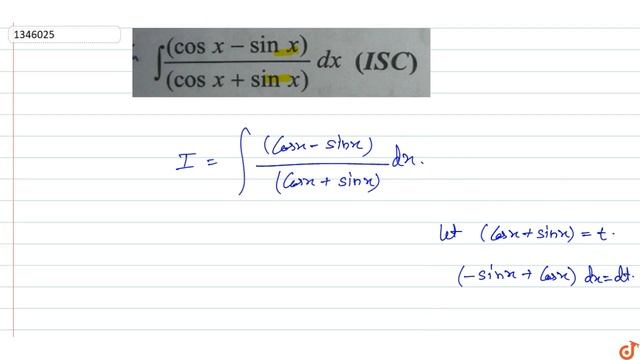 1346025
∫ (cos x − sin x) / (cos x + sin x) dx (ISC)
I = ∫ (Cosx − sinx) / (Cosx + sinx) dx.
let (Cosx + sinx) = t.
(−sinx + Cosx) dx = dt.